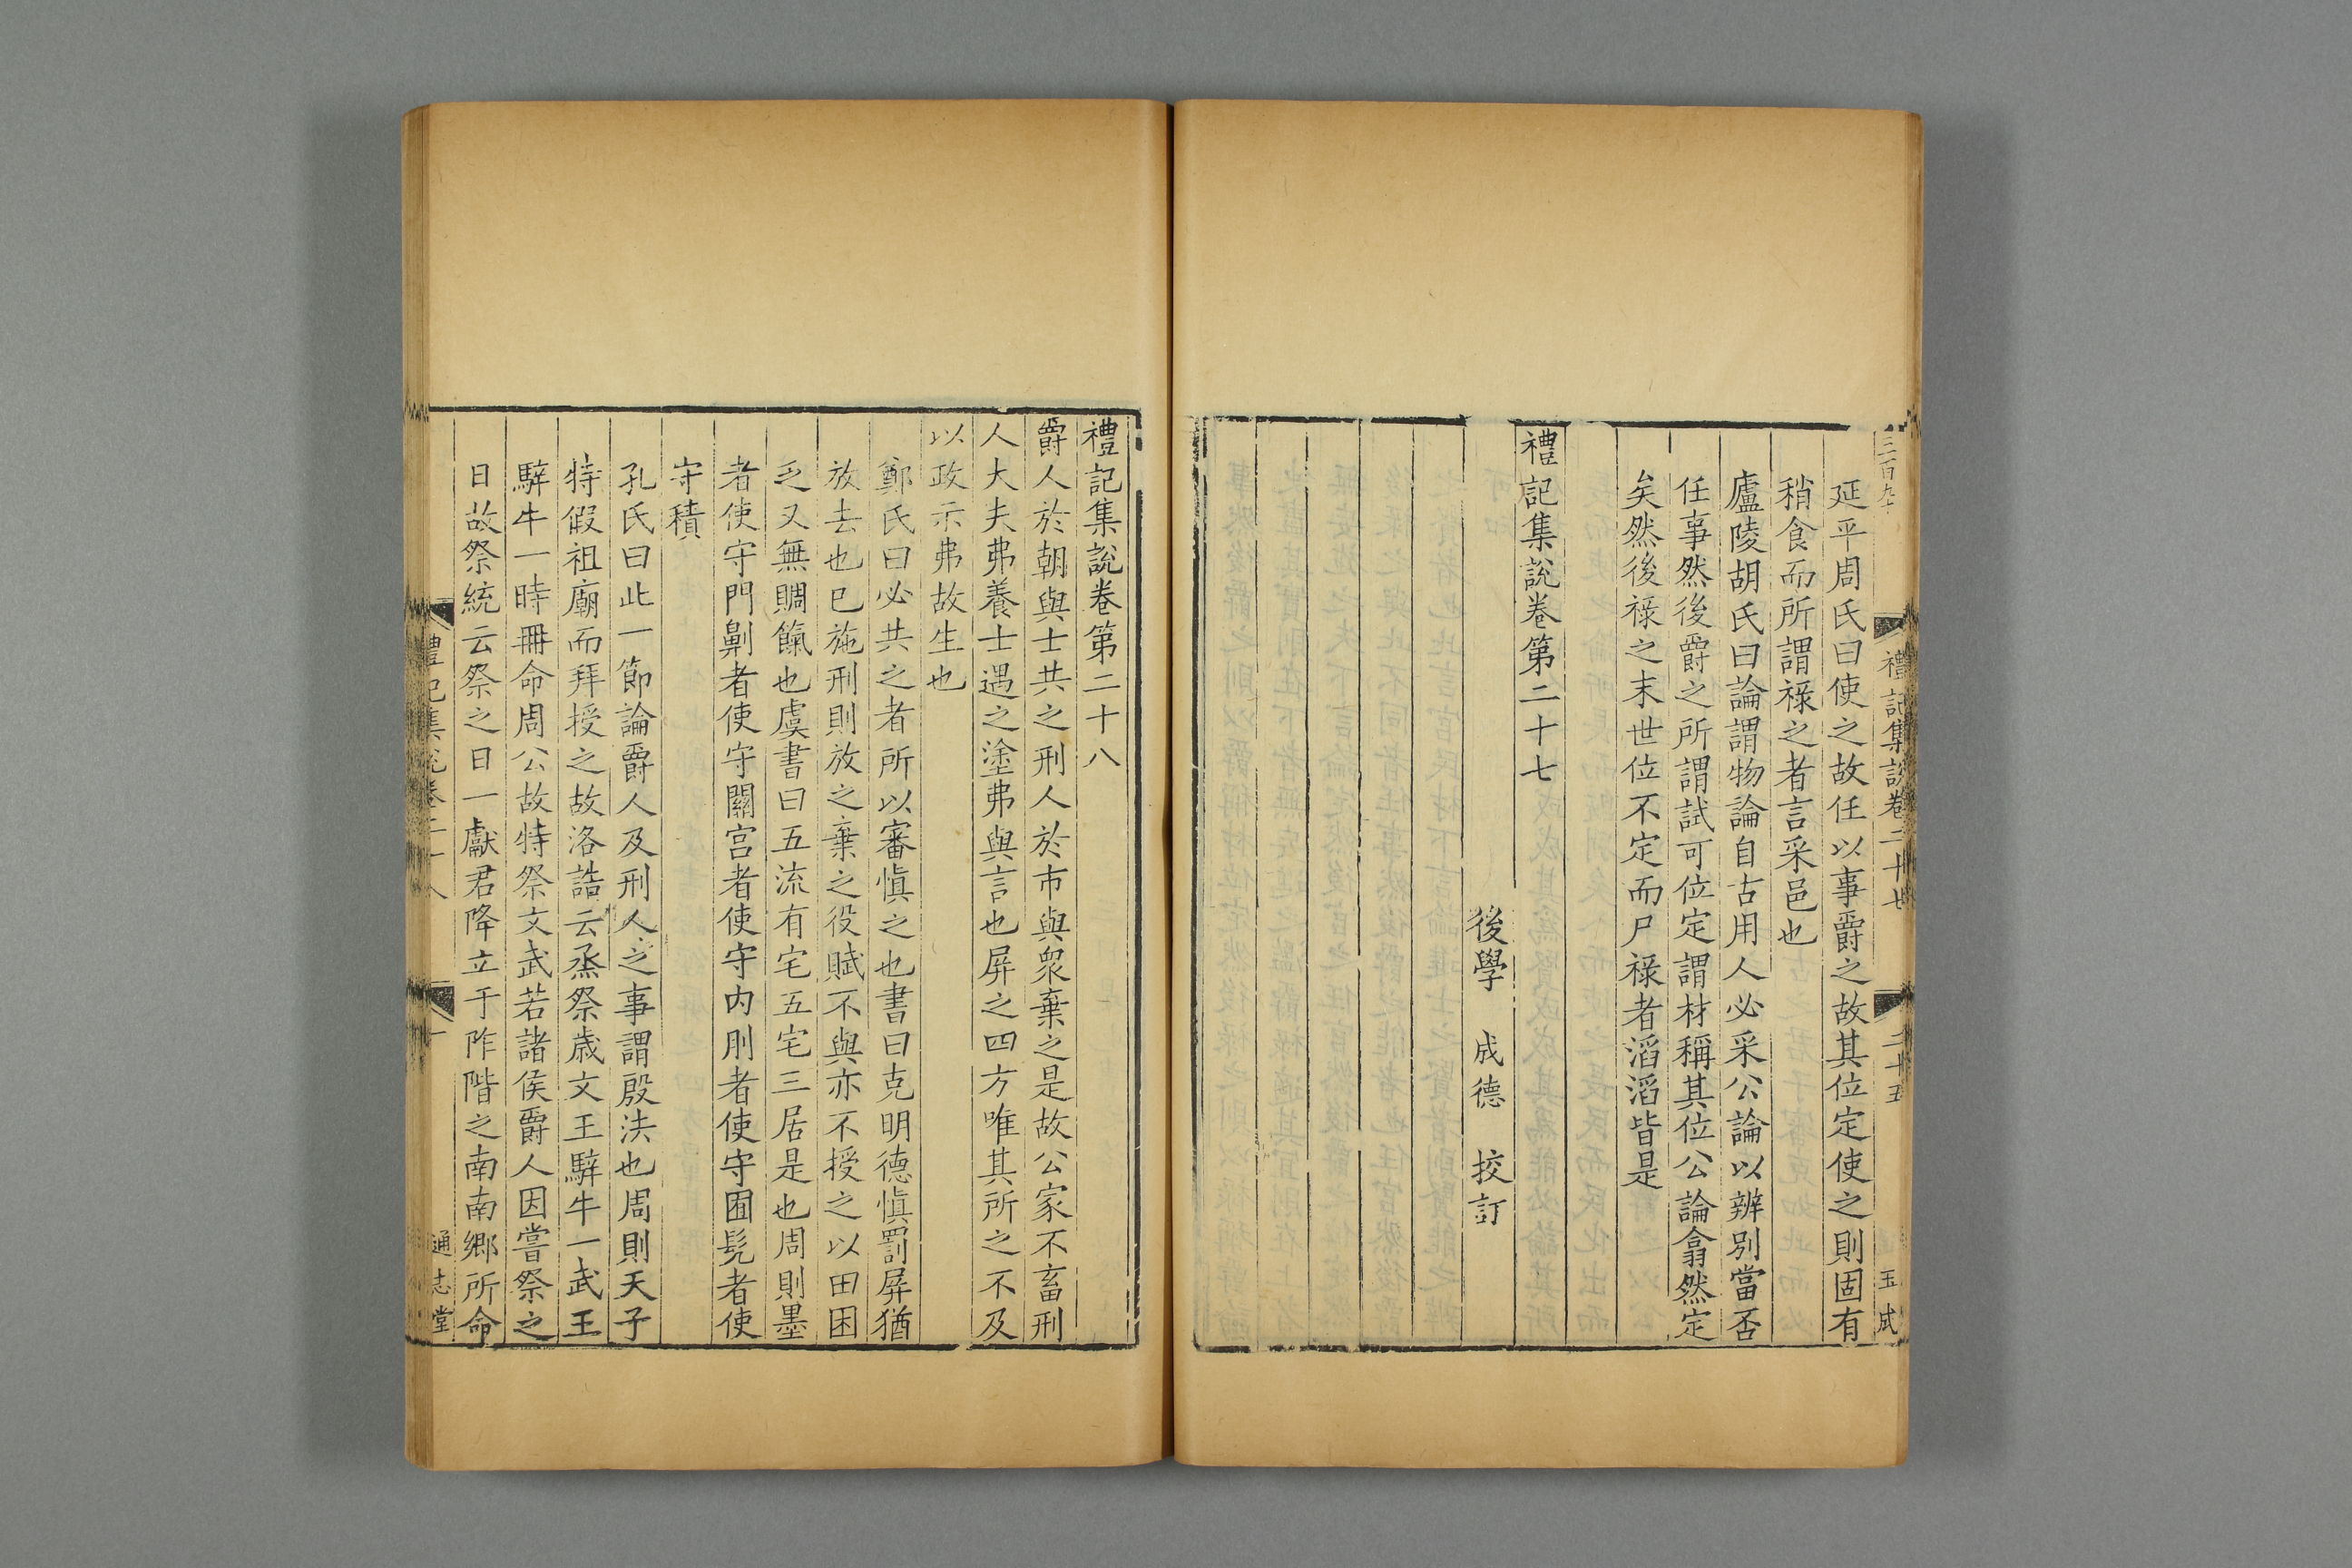 延平周氏曰使之故任以事爵之故其位定使之則固有
稍食而所謂祿之者言采邑也
廬陵胡氏曰論謂物論自古用人必采公論以辨別當否
任事然後爵之所謂試可位定謂材稱其位公論翕然定
矣然後祿之末世位不定而尸祿者滔滔皆是
禮記集說卷第二十七
後學 成德 挍訂
禮記集說卷二十七
二十五
禮記集說卷第二十八
爵人於朝與士共之刑人於市與衆棄之是故公家不畜刑
人大夫弗養士遇之塗弗與言也屏之四方唯其所之不及
以政示弗故生也
鄭氏曰必共之者所以審愼之也書曰克明德愼罰屏猶
放去也已施刑則放之棄之役賦不與亦不授之以田困
乏又無賙餼也虞書曰五流有宅五宅三居是也周則墨
者使守門劓者使守關宮者使守内刖者使守囿髠者使
守積
孔氏曰此一節論爵人及刑人之事謂殷法也周則天子
特假祖廟而拜授之故洛誥云烝祭歲文王騂牛一武王
騂牛一時冊命周公故特祭文武若諸侯爵人因嘗祭之
日故祭統云祭之日一獻君降立于阼階之南南鄉所命
禮記集說卷二十八
一
通志堂